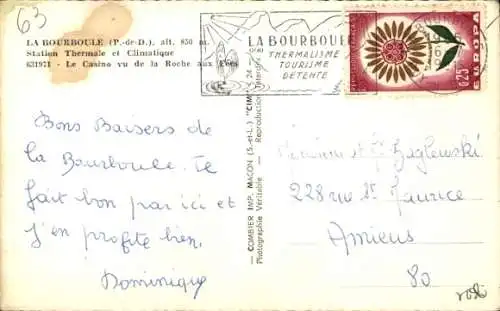 63
LA BOURBOULE (P.-de-D.), alt. 850 m.
Station Thermale et Climatique
631971 - Le Casino vu de la Roche aux Fées
LA BOURBOULE
THERMALISME
TOURISME
DÉTENTE
0,25
EUROPA
COMBIER IMP. MACON (S.-et-L.) "CIM"
Photographie Véritable - Reproduction Interdite
Bons Baisers de
la Bourboule. Il
fait bon par ici et
j'en profite bien,
Dominique
228 rue St Maurice
Amiens
80